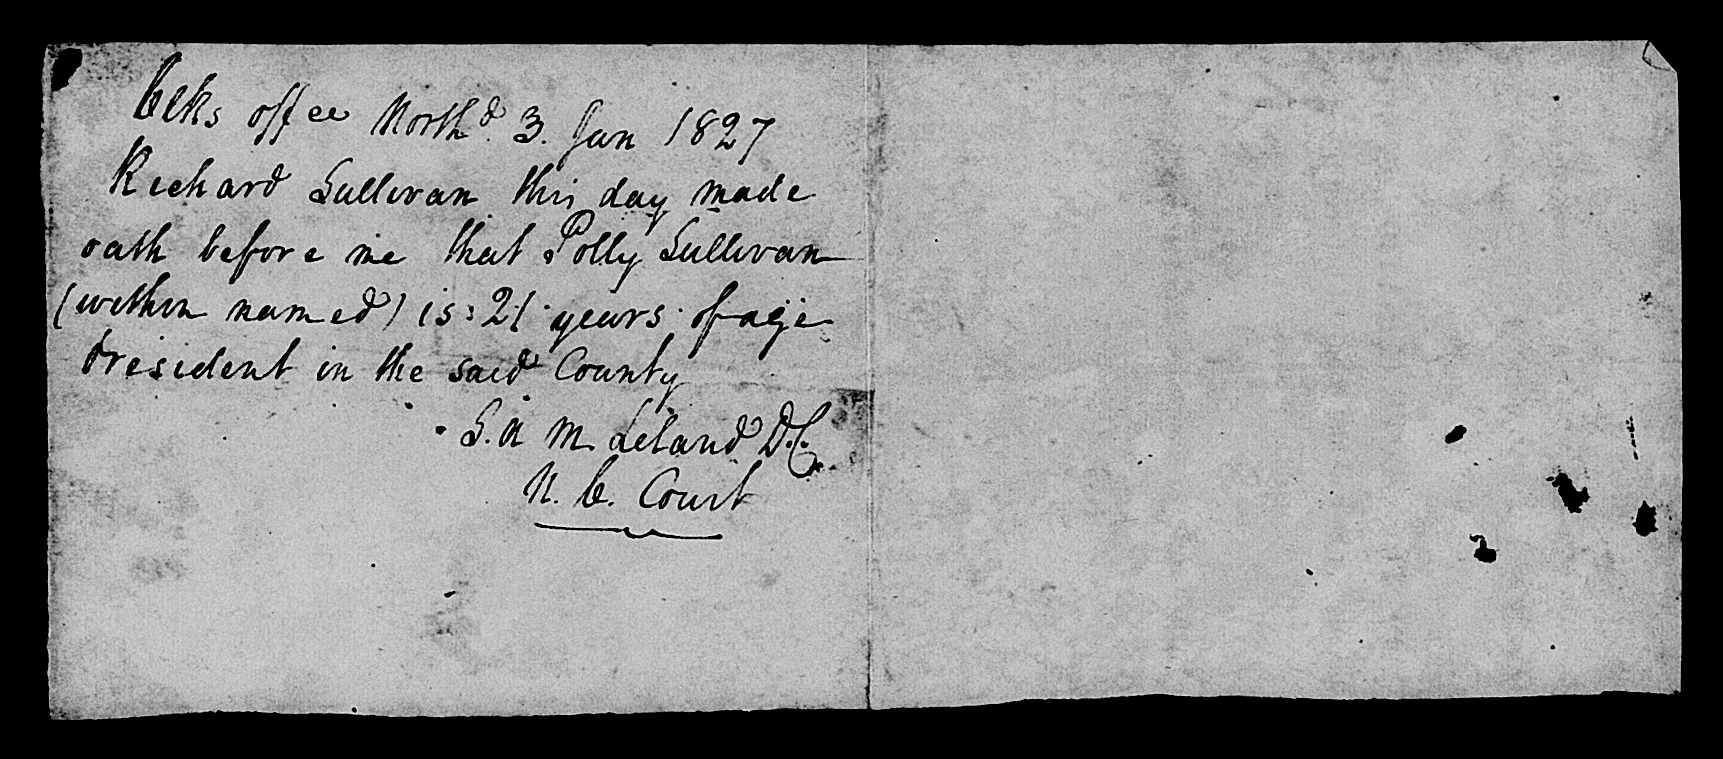 Clks office North^d. 3. Jan 1827
Richard Sullivan this day made
oath before me that Polly Sullivan
(within named) is 21 years of age
& resident in the said County
S. A M. Leland D.C.
N. C. Court